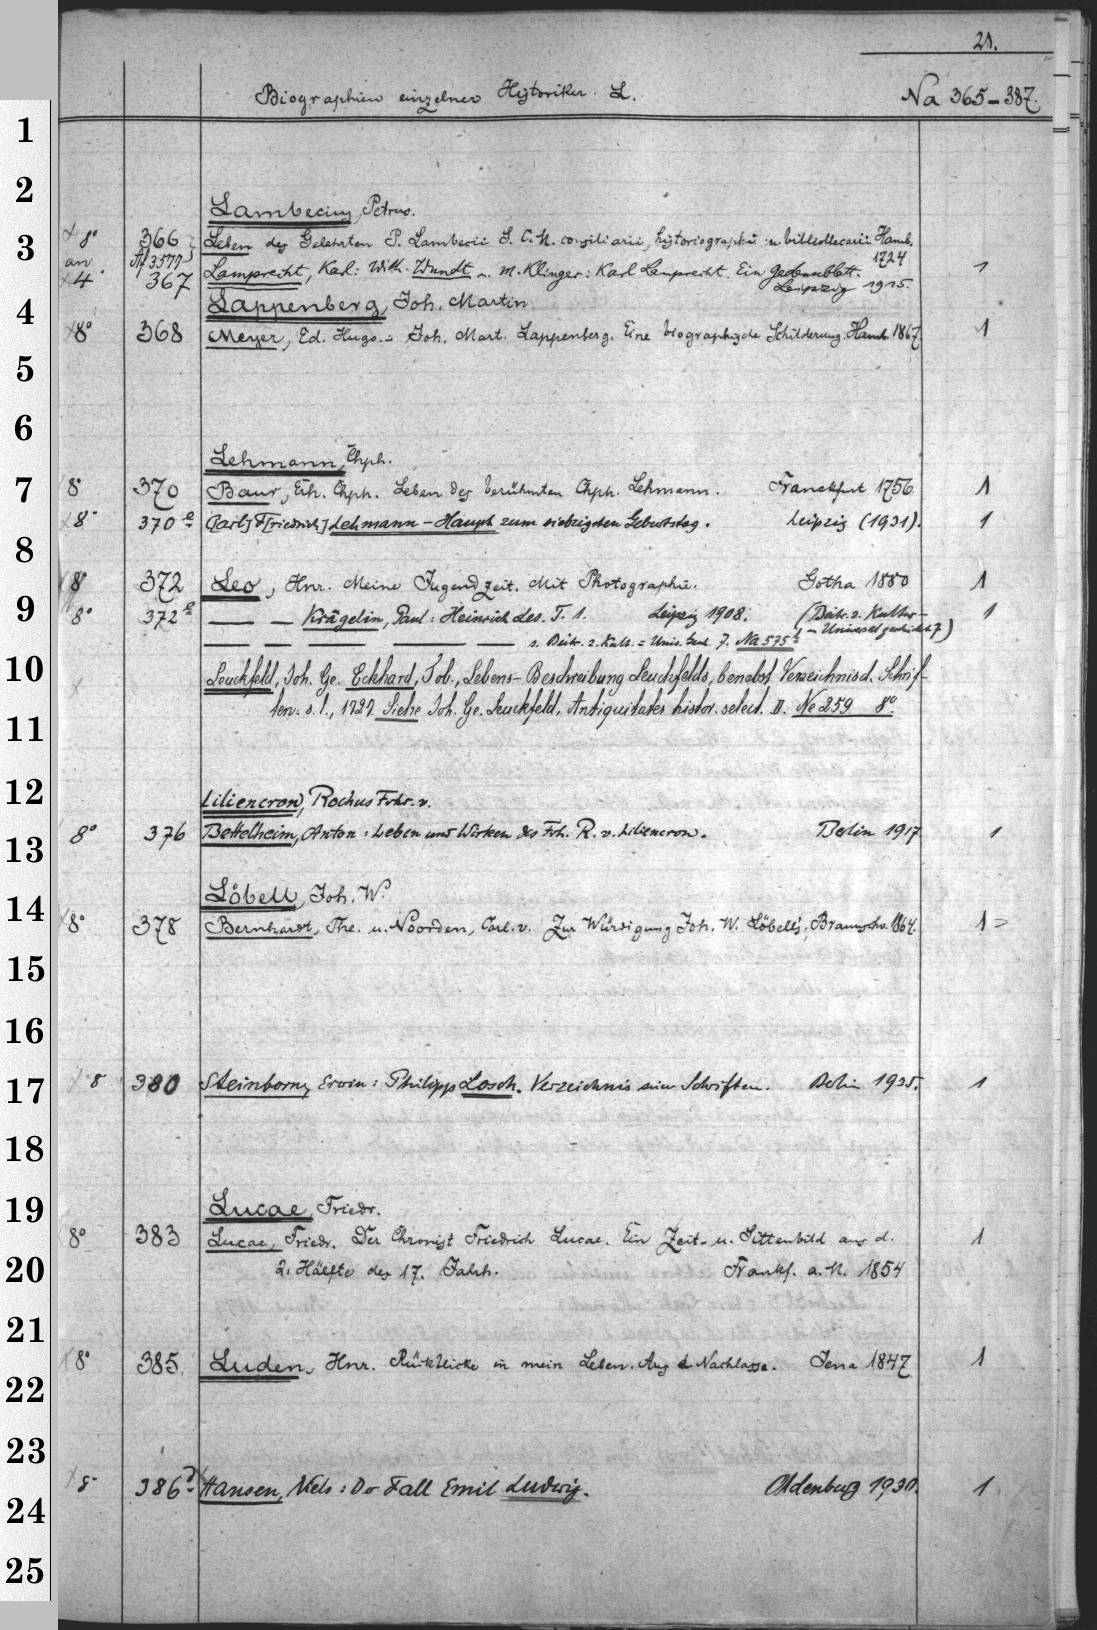 21.
Biographien einzelner Historiker. L. Na 365-387.
1
2
Lambecius, Petrus.
3
8° 366 Leben des Gelehrten P. Lambecii S. C. M. consiliarii, historiographi u. bibliothecarii Hamb. 1724
an Af 3577
4° 367 Lamprecht, Karl: Wilh. Wundt u. M. Klinger: Karl Lamprecht. Ein Gedenkblatt. Leipzig 1915. 1
4
Lappenberg, Joh. Martin
8° 368 Meyer, Ed. Hugo.: Joh. Mart. Lappenberg. Eine biographische Schilderung. Hamb. 1867. 1
5
6
Lehmann, Chph.
7
8° 370 Baur, Erh. Chph. Leben des berühmten Chph. Lehmann. Franckfurt 1756 1
8° 370 e [Carl] F[riedrich] Lehmann-Haupt zum siebzigsten Geburtstag. Leipzig (1931). 1
8
8° 372 Leo, Hnr. Meine Jugendzeit. Mit Photographie. Gotha 1880 1
9
8° 372 e — — Krägelin, Paul: Heinrich Leo. T. 1. Leipzig 1908. (Beitr. z. Kultur- u. Universalgeschichte 7) 1
— — — — — s. Beitr. z. Kult. = Univ. Gesch. 7. Na 575 t
10
Leuckfeld, Joh. Ge. Eckhard, Tob., Lebens-Beschreibung Leuckfelds, benebst Verzeichnis d. Schrif-
ten. s. l., 1727. Siehe Joh. Ge. Leuckfeld, Antiquitates histor. select. II. Ne 259 8°.
11
12
Liliencron, Rochus Frhr. v.
8° 376 Bettelheim, Anton: Leben und Wirken des Frh. R. v. Liliencron. Berlin 1917 1
13
Löbell, Joh. W.
14
8° 378 Bernhardt, The. u. Noorden, Carl. v. Zur Würdigung Joh. W. Löbell's. Braunschw. 1864. 1
15
16
17
8 380 Steinborn, Erwin: Philipp Losch. Verzeichnis seiner Schriften. Berlin 1935. 1
18
19
Lucae, Friedr.
8° 383 Lucae, Friedr. Der Chronist Friedrich Lucae. Ein Zeit- u. Sittenbild aus d. 1
20
2. Hälfte des 17. Jahrh. Frankf. a. M. 1854
21
8° 385. Luden, Hnr. Rückblicke in mein Leben. Aus d. Nachlasse. Jena 1847 1
22
23
8° 386 Hansen, Niels: Der Fall Emil Ludwig. Oldenburg 1930. 1
24
25